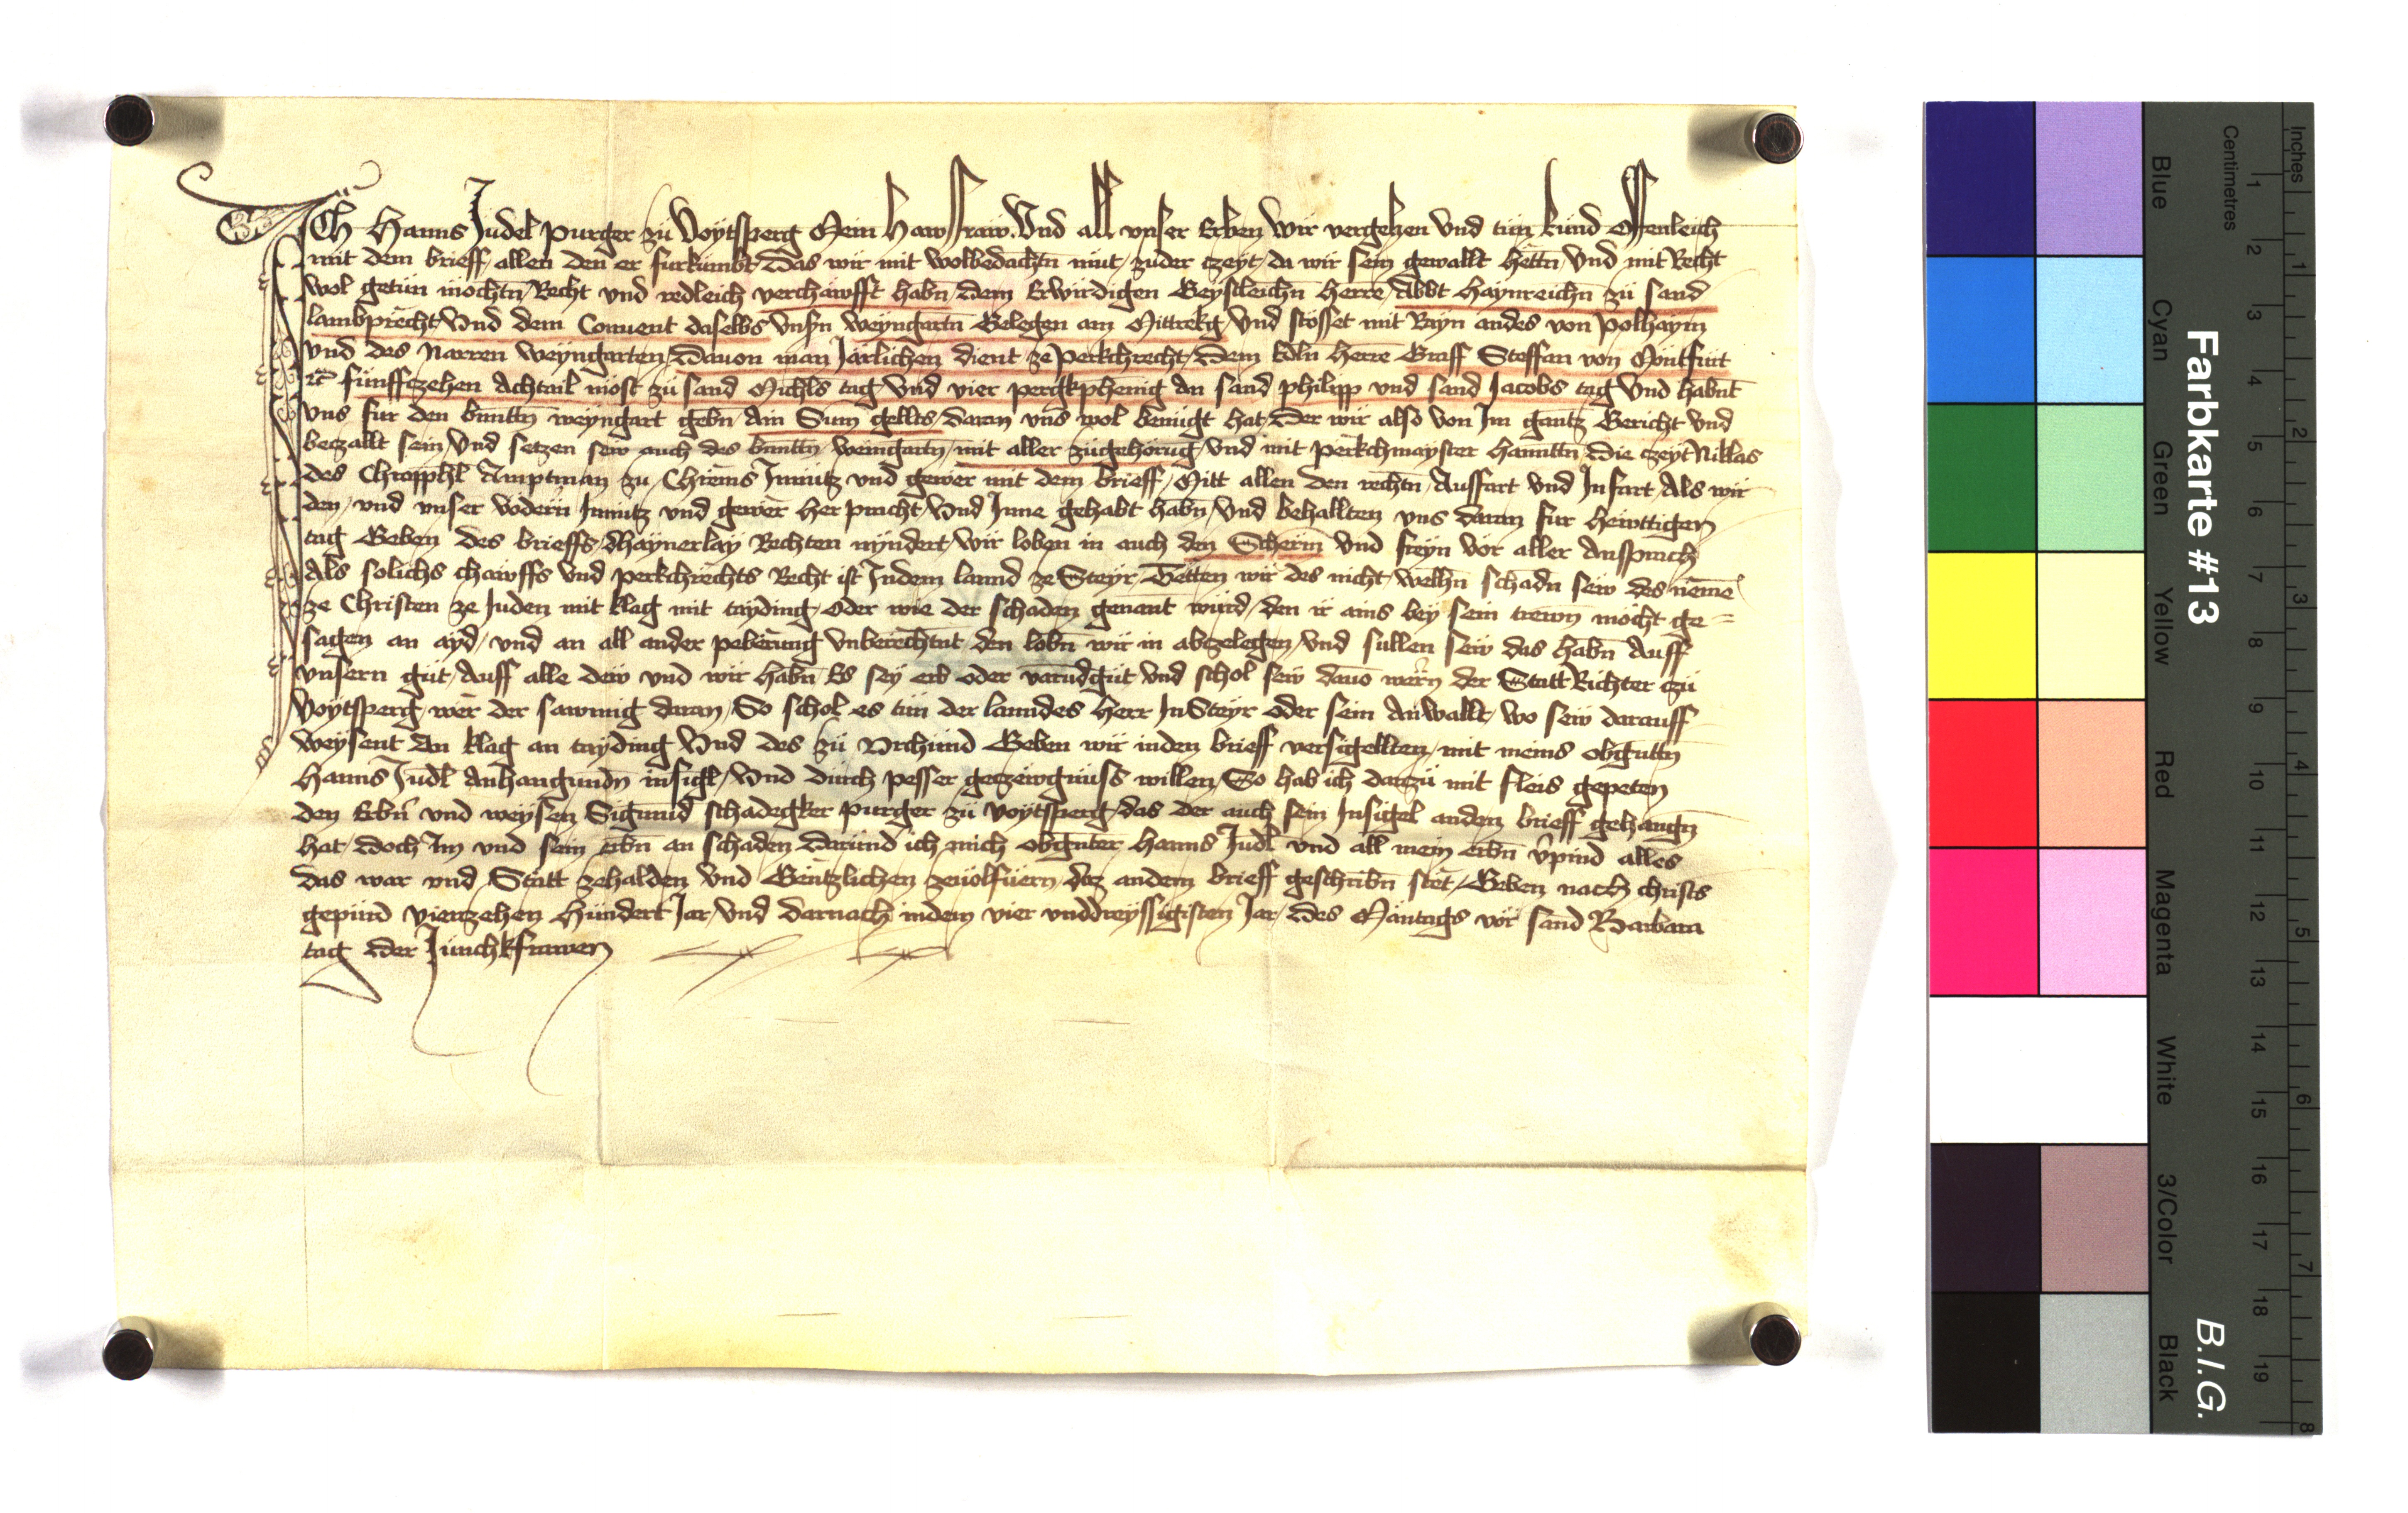 Ich Hanns Judel purger zü Voytsperg Mein Hawsfraw Vnd all vnser Erben Wir vergehen Vnd tün künd Offenleich
mit dem brieff allen den er fürkümbt Das wir mit wolbedachtn müt zuder czeyt da wir sein gewallt hettn Vnd mit Recht
Wol getün mochtn Recht vnd redleich verchawfft habn dem Erwirdigen Geystleichn herre Abbt Haynreichn zü sand
lambprecht Vnd dem Conuent daselbs Vnsn Weyngartn Gelegen am Mittrekg Vnd stösset mit Rayn andes von Polhaym
Vnd des Narren Weyngarten Dauon man Järlichen dient ze perkchrecht Dem Edln herre Graff Steffan von Müntfürt
fünffczehen Achtail most zü sand Michls tag Vnd vier pergkphening An sand philipp vnd sand Jacobs tag Vnd habnt
vns für den bnnttn weyngart gebn Ain Sum gellts daran vns wol benügt hat Der wir also von Im gantz Gericht Vnd
beczallt sein Vnd setzen sew auch des bnnttn weingartn mit aller zügehörug Vnd mit perkchmayster hannttn Die czeyt Niklas
des Chropphl Amptman zu Chrems In nütz vnd gewer mit dem brieff Mitt allen den rechtn Auffart vnd Infart Als wir
den vnd vnser vödern Innütz vnd gewer her pracht Vnd Inne gehabt habn Vnd behallten vns daran für hewttigen
tag Geben des brieffs Chaynerlay Rechten nyndert Wir loben in auch den Scherm Vnd freyn vor aller Ansprach
Als solichs chawffs Vnd perkchrechts Recht ist Indem lannd ze Steyr Tetten wir des nicht Welhn schadn sew des neme
ze Christen ze Juden mit klag mit tayding Oder wie der schaden genant würd den ir ains bey sein trewn möcht ge=
sagen an ayd vnd an all ander peberung Vnberechtnt den lobn wir in abczelegen Vnd sullen sew das habn Auff
Vnsern güt Auff alle dew vnd wir habn Es sey erb oder varündgüt Vnd schol sew dauo wern der Statt Richter czü
Voytsperg wer der sawmig daran So schol es tün der lanndes herr In Steyr oder sein Anwallt wo sew darauff
Weysent An klag an tayding Vnd des zü Vrchünd Geben wir inden brieff versigellten mit meins obgnttn
Hanns Judl Anhangundn insigl Vnd durch pesser geczewgnüss willen So hab ich darzü mit fleis gepeten
den Erbn vnd weysen Sigmund schadegker purger zü Voytsperg das der auch sein Insigel anden brieff gehangn
hat doch Im vnd sein erbn an schaden Daründ ich mich obgnter Hanns Judl vnd all mein erbn vpind alles
das war vnd Statt zehalden Vnd Gentzlichen zeuolfüern daz andem brieff geschribn stet Geben nach christs
gepürd vierczehen Hündert Jar Vnd darnach indem vier vnddreyssigisten Jar Des Mäntags vor sand Barbara
tag der Junchkfrawen
Farbkarte #13
B.I.G.
Inches 1 2 3 4 5 6 7 8
Centimetres 1 2 3 4 5 6 7 8 9 10 11 12 13 14 15 16 17 18 19
Blue Cyan Green Yellow Red Magenta White 3/Color Black